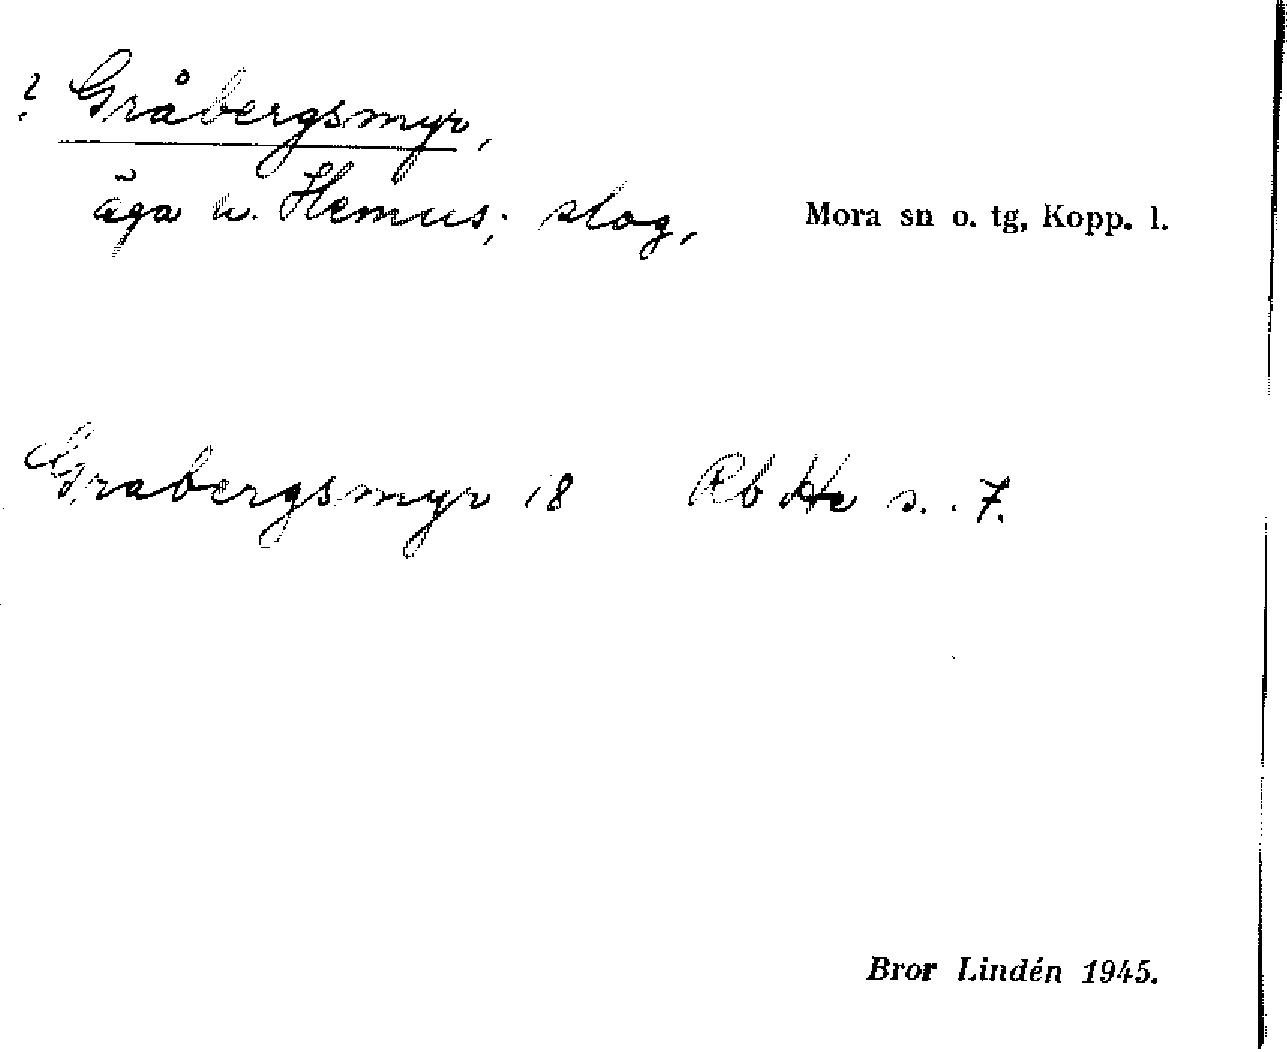 ? Gråbergsmyr,
äga u. Hemus; slog, Mora sn o. tg, Kopp. l.
Grabergsmyr 18 Rb He s. 7.
Bror Lindén 1945.